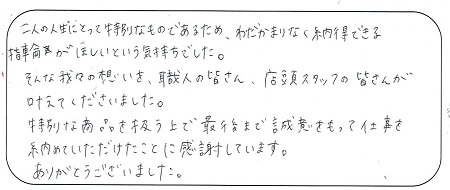 二人の人生にとって特別なものであるため、わだかまりなく納得できる
指輪がほしいという気持ちでした。
そんな我々の想いを、職人の皆さん、店頭スタッフの皆さんが
叶えてくださいました。
特別な商品を扱う上で最後まで誠意をもって仕事を
納めていただけたことに感謝しています。
ありがとうございました。